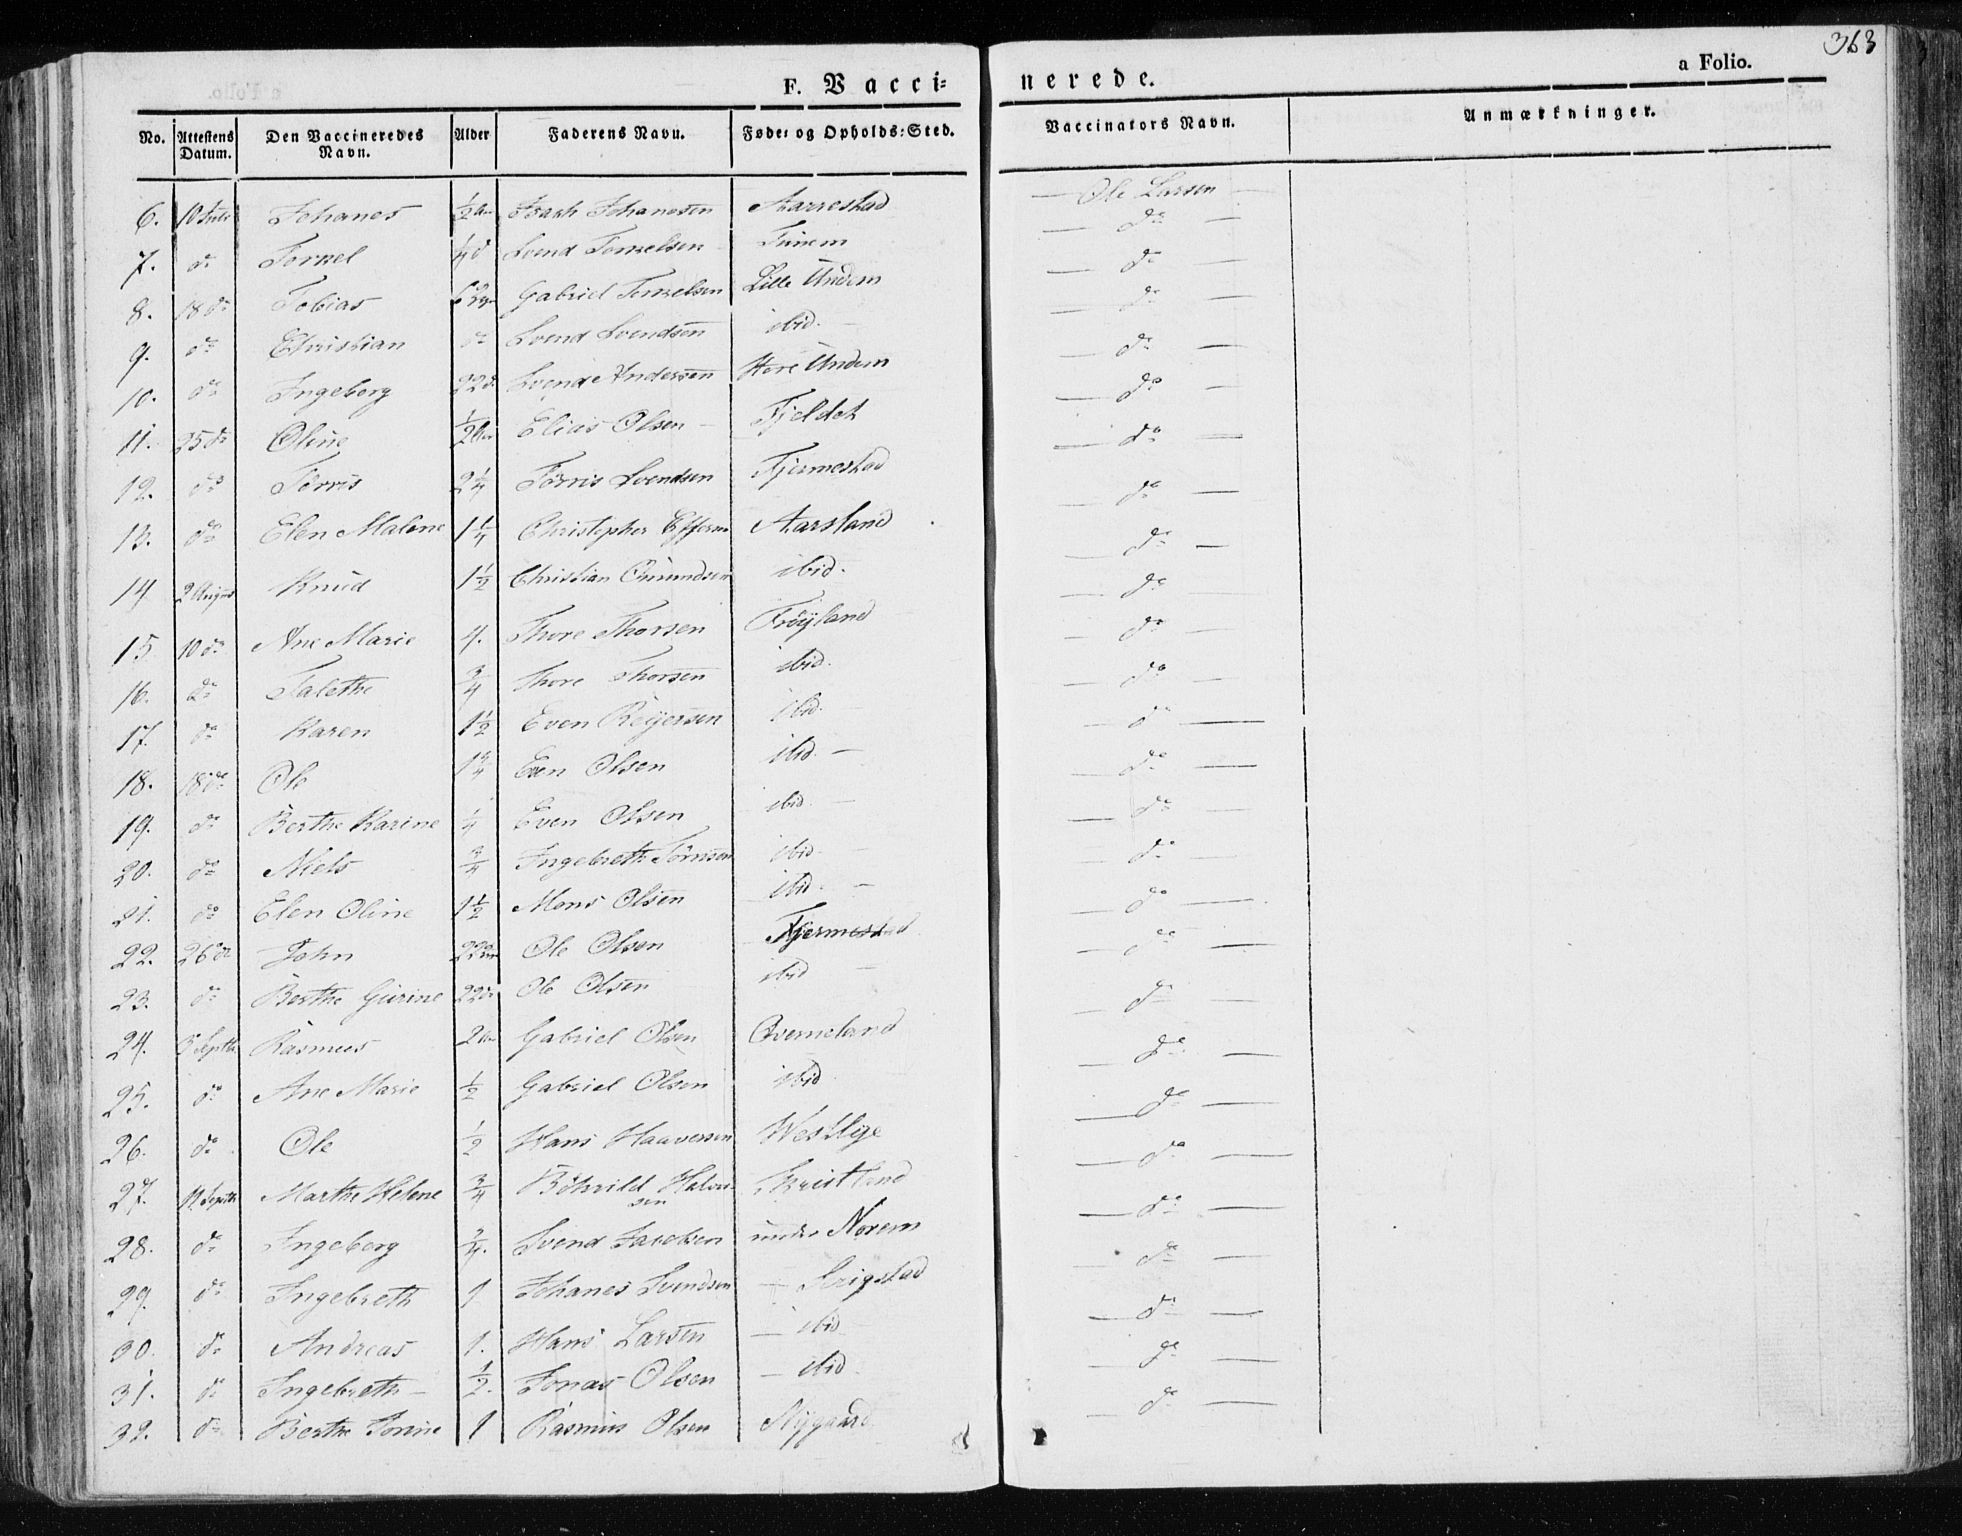 363
a Folio.
F. Vacci= nerede.
No. Attestens Datum. Den Vaccineredes Navn. Alder Faderens Navn. Føde= og Opholds=Sted. Vaccinators Navn. Anmærkninger.
6. 10 Juli Johanes ½ Aar Isach Johanesen Aarrestad — Ole Larsen —
7. do Torkel ¼ d Svend Torkelsen Tunem — do —
8. 18 do Tobias Gabriel Torkelsen Lille Undem — do —
9. do Christian do Svend Svendsen ibid. — do —
10. do Ingeborg 22 d. Svend Andersen Store Undem — do —
11. 25 do Oline ½ Aar Elias Olsen — Fjeldet — do —
12. do Tørris 2¼ Tørris Svendsen Fjermestad — do —
13. do Elen Malene 1¼ Christopher Aarsland — do —
14 2 August Knud 1½ Christian Omundsen ibid. — do —
15 10 do Ane Marie 4. Thore Thorsen Frøyland — do —
16. do Talethe ¾ Thore Thorsen ibid. — do —
17. do Karen 1½ Even Reiersen ibid. — do —
18. 18 do Ole 1¾ Even Olsen ibid. — — do —
19. do Berthe Karine ¼ Even Olsen ibid. — — do —
20. do Niels ¾ Ingebreth Tørrisen ibid. — — do —
21. do Elen Oline 1½ Mons Olsen ibid. — — do —
22. 26 do John 22 Ole Olsen Fjermestad — do —
23. do Berthe Gurine 22 d. Ole Olsen ibid — — do —
24. 3 Septbr Rasmus 2 Aar Gabriel Olsen Qverneland — do —
25. do Ane Marie ½ Gabriel Olsen ibid — do —
26. do Ole ½ Hans Haaversen Westlye — do —
27. 11 Septbr Marthe Helene ¾ Halvor-
sen — do —
28. do Ingeborg ¾. Svend Jacobsen under Norem — do —
29. do Ingebreth 1 Johanes Svendsen — Serigstad — do —
30. do Andreas 1. Hans Larsen — ibid — do —
31. do Ingebreth — ½. Jonas Olsen — ibid — do —
32. do Berthe Torine 1 Rasmus Olsen Nygaard — do —